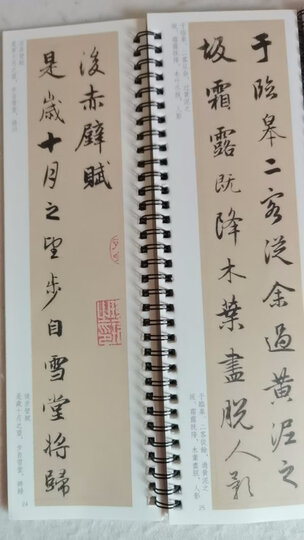 後赤壁賦
是歲十月之望步自雪堂將歸
後赤壁賦
是歲十月之望，步自雪堂，將歸
24
于臨皋二客從余過黃泥之
坂霜露既降木葉盡脫人影
于臨皋。二客從余，過黃泥之
坂。霜露既降，木葉盡脫，人影
25